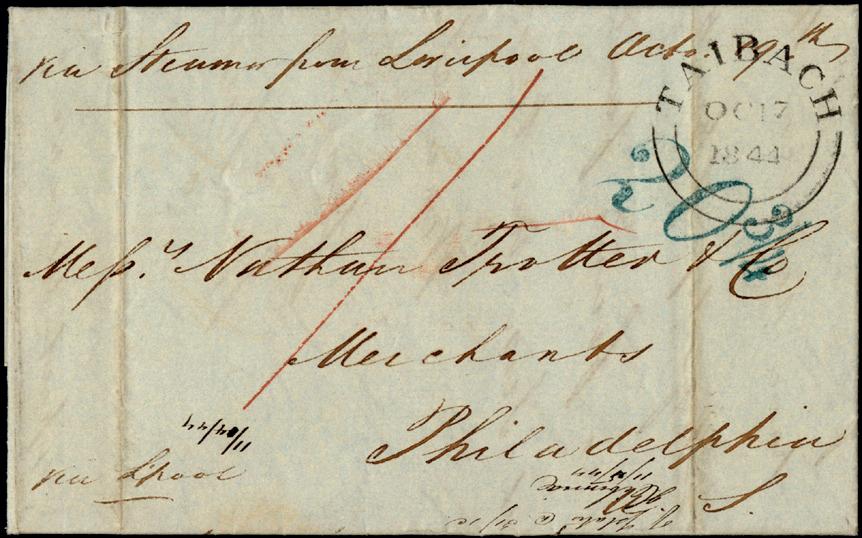 via Steamer from Liverpool Octo. 19th
TAIBACH
OC 17
1844
20 3/4
Messrs Nathan Trotter & Co
Merchants
Philadelphia
via L'pool
11/04/44